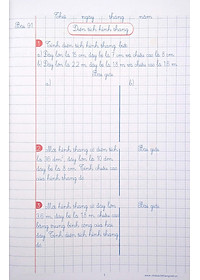 Thứ ngày tháng năm
Bài 91
Diện tích hình thang
1 Tính diện tích hình thang biết:
a) Đáy lớn là 15 cm, đáy bé là 7 cm và chiều cao là 8 cm.
b) Đáy lớn là 2,2 m, đáy bé là 1,8 m và chiều cao là 1,5 m.
Bài giải
a) b)
2 Một hình thang có diện tích
đáy lớn là 10 cm,
đáy bé là 8 cm. Tính chiều cao
của hình thang đó.
Bài giải
3 Một hình thang có đáy lớn
đáy bé là 1,8 m, chiều cao
bằng trung bình cộng của hai
đáy. Tính diện tích hình thang
đó.
Bài giải